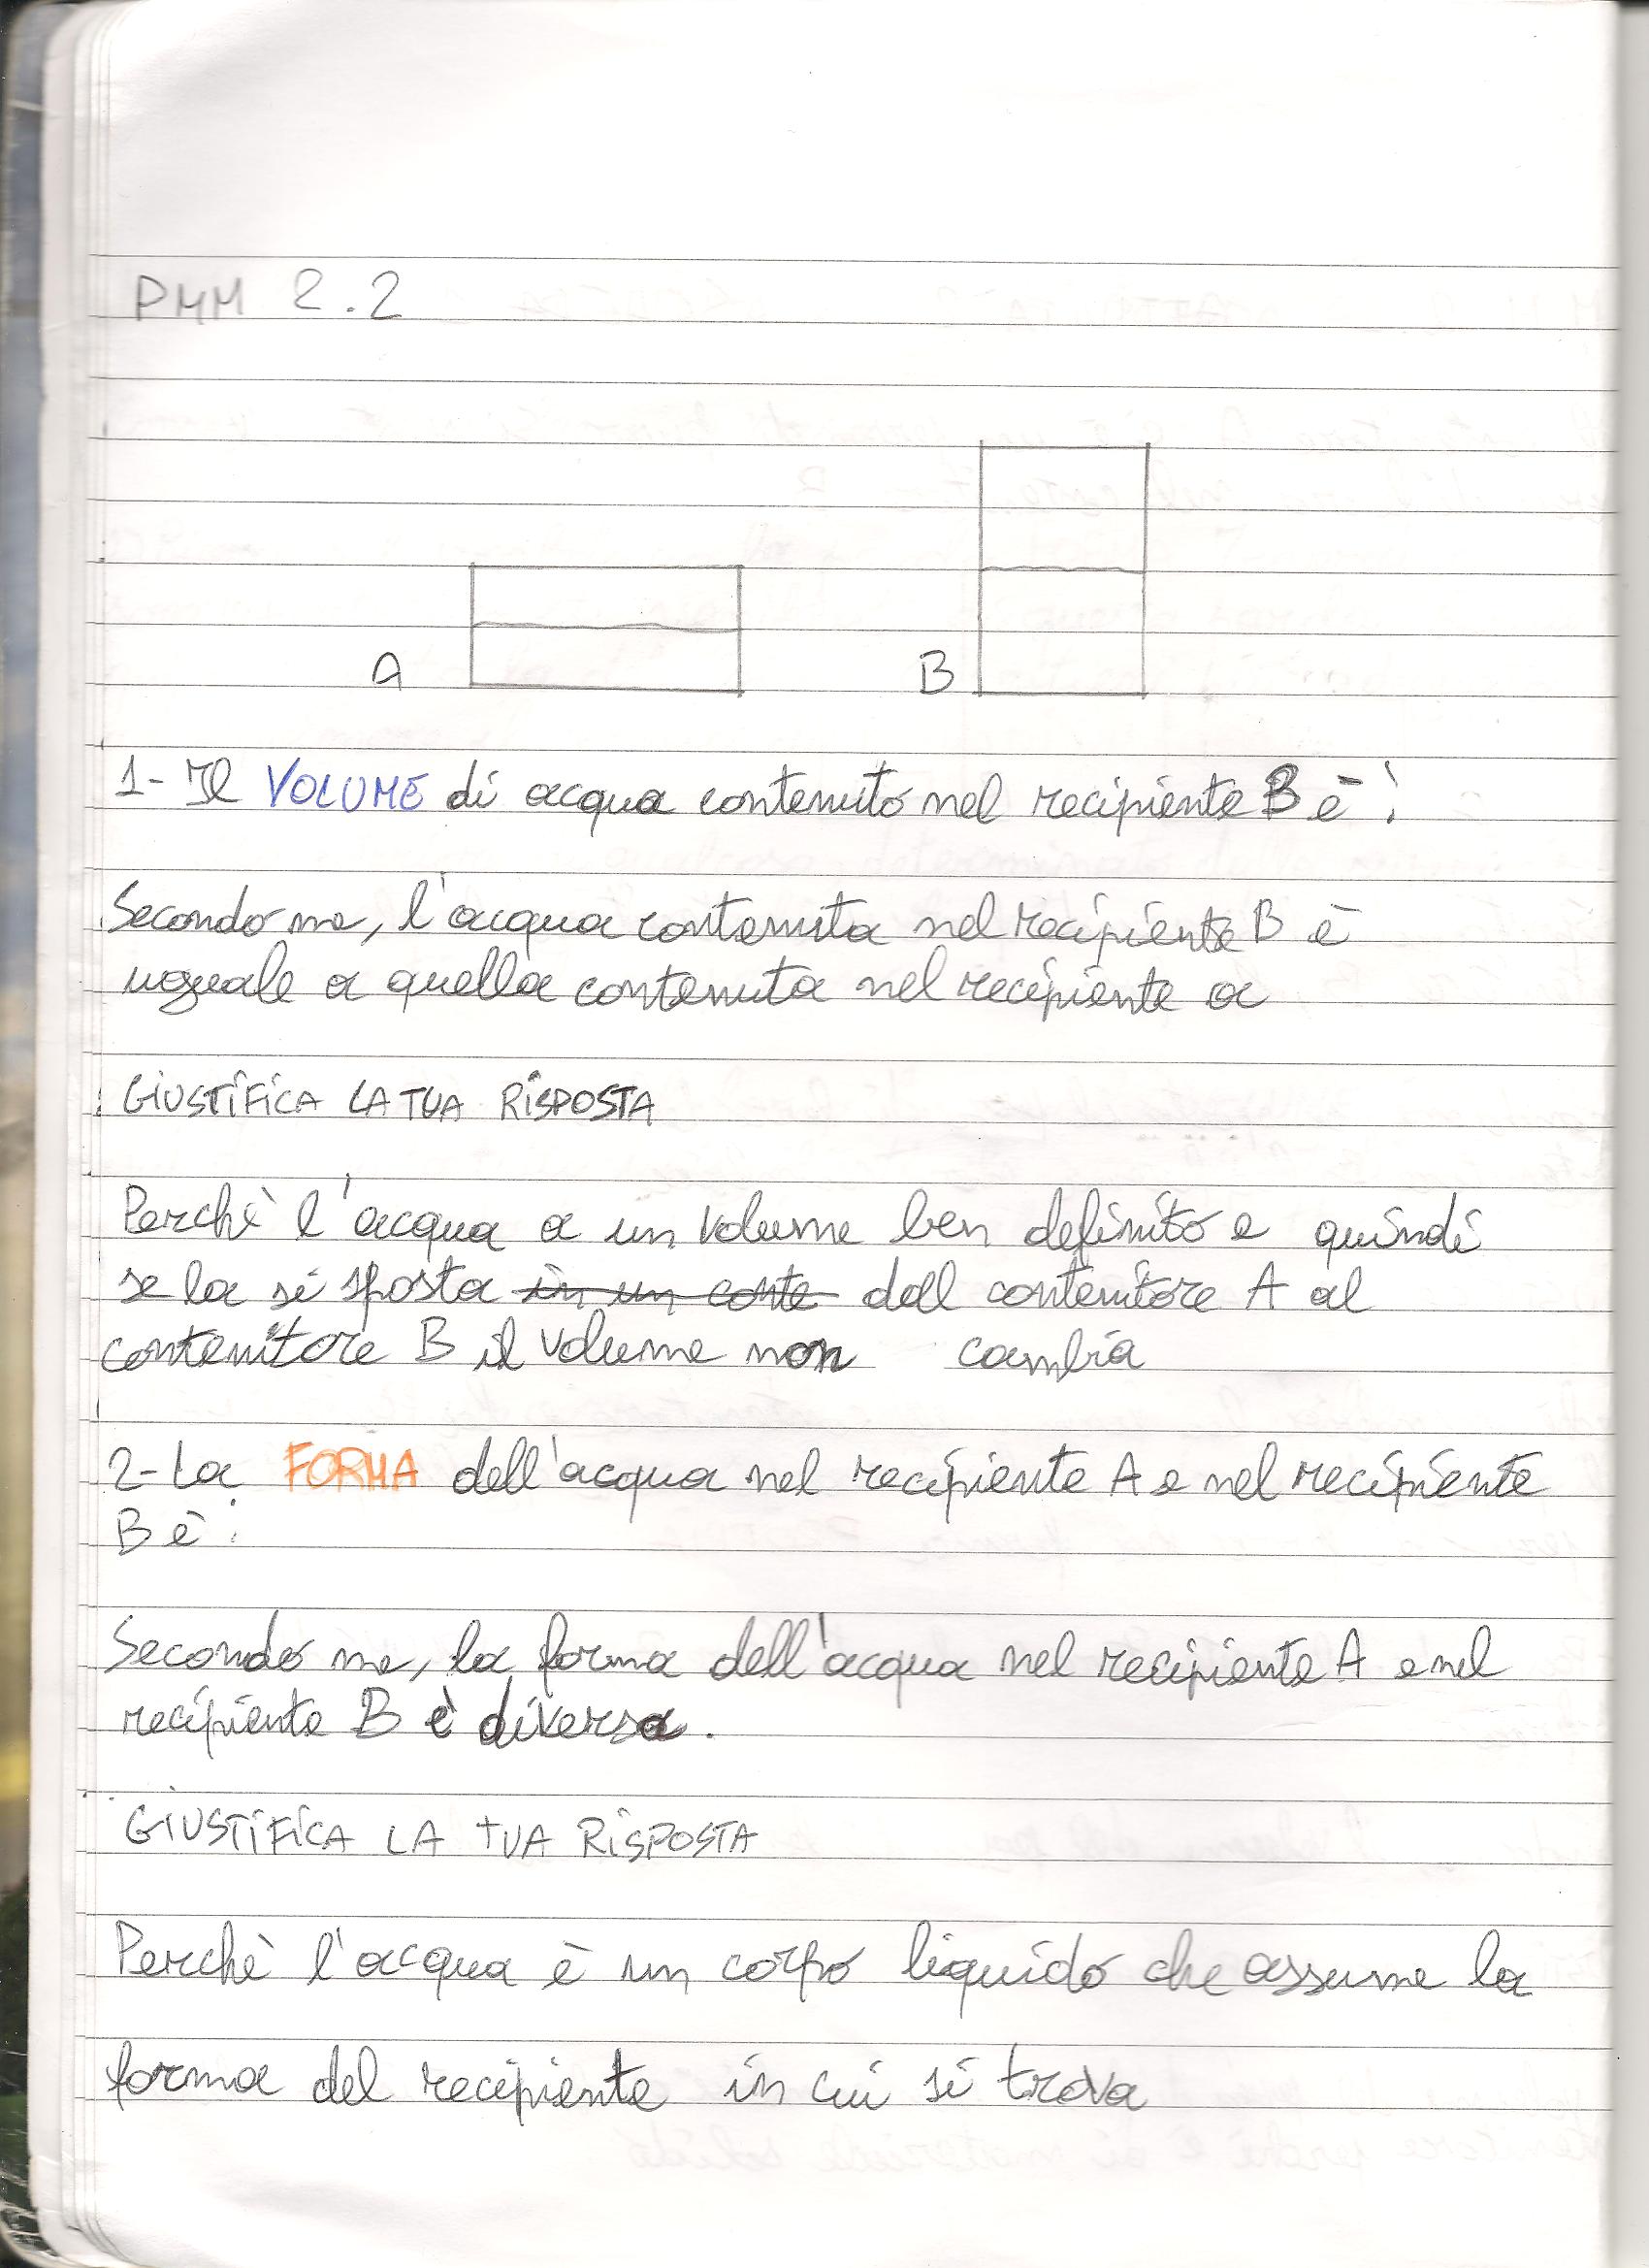 PMM 2.2
A B
1- Il VOLUME di acqua contenuto nel recipiente B è :
Secondo me, l'acqua contenuta nel recipiente B è
uguale a quella contenuta nel recipiente a
GIUSTIFICA LA TUA RISPOSTA
Perchè l'acqua a un volume ben definito e quindi
se la si sposta in un conte dall contenitore A al
contenitore B il volume non cambia
2- La FORMA dell'acqua nel recipiente A e nel recipiente
B è :
Secondo me, la forma dell'acqua nel recipiente A e nel
recipiente B è diversa.
GIUSTIFICA LA TUA RISPOSTA
Perchè l'acqua è un corpo liquido che assume la
forma del recipiente in cui si trova